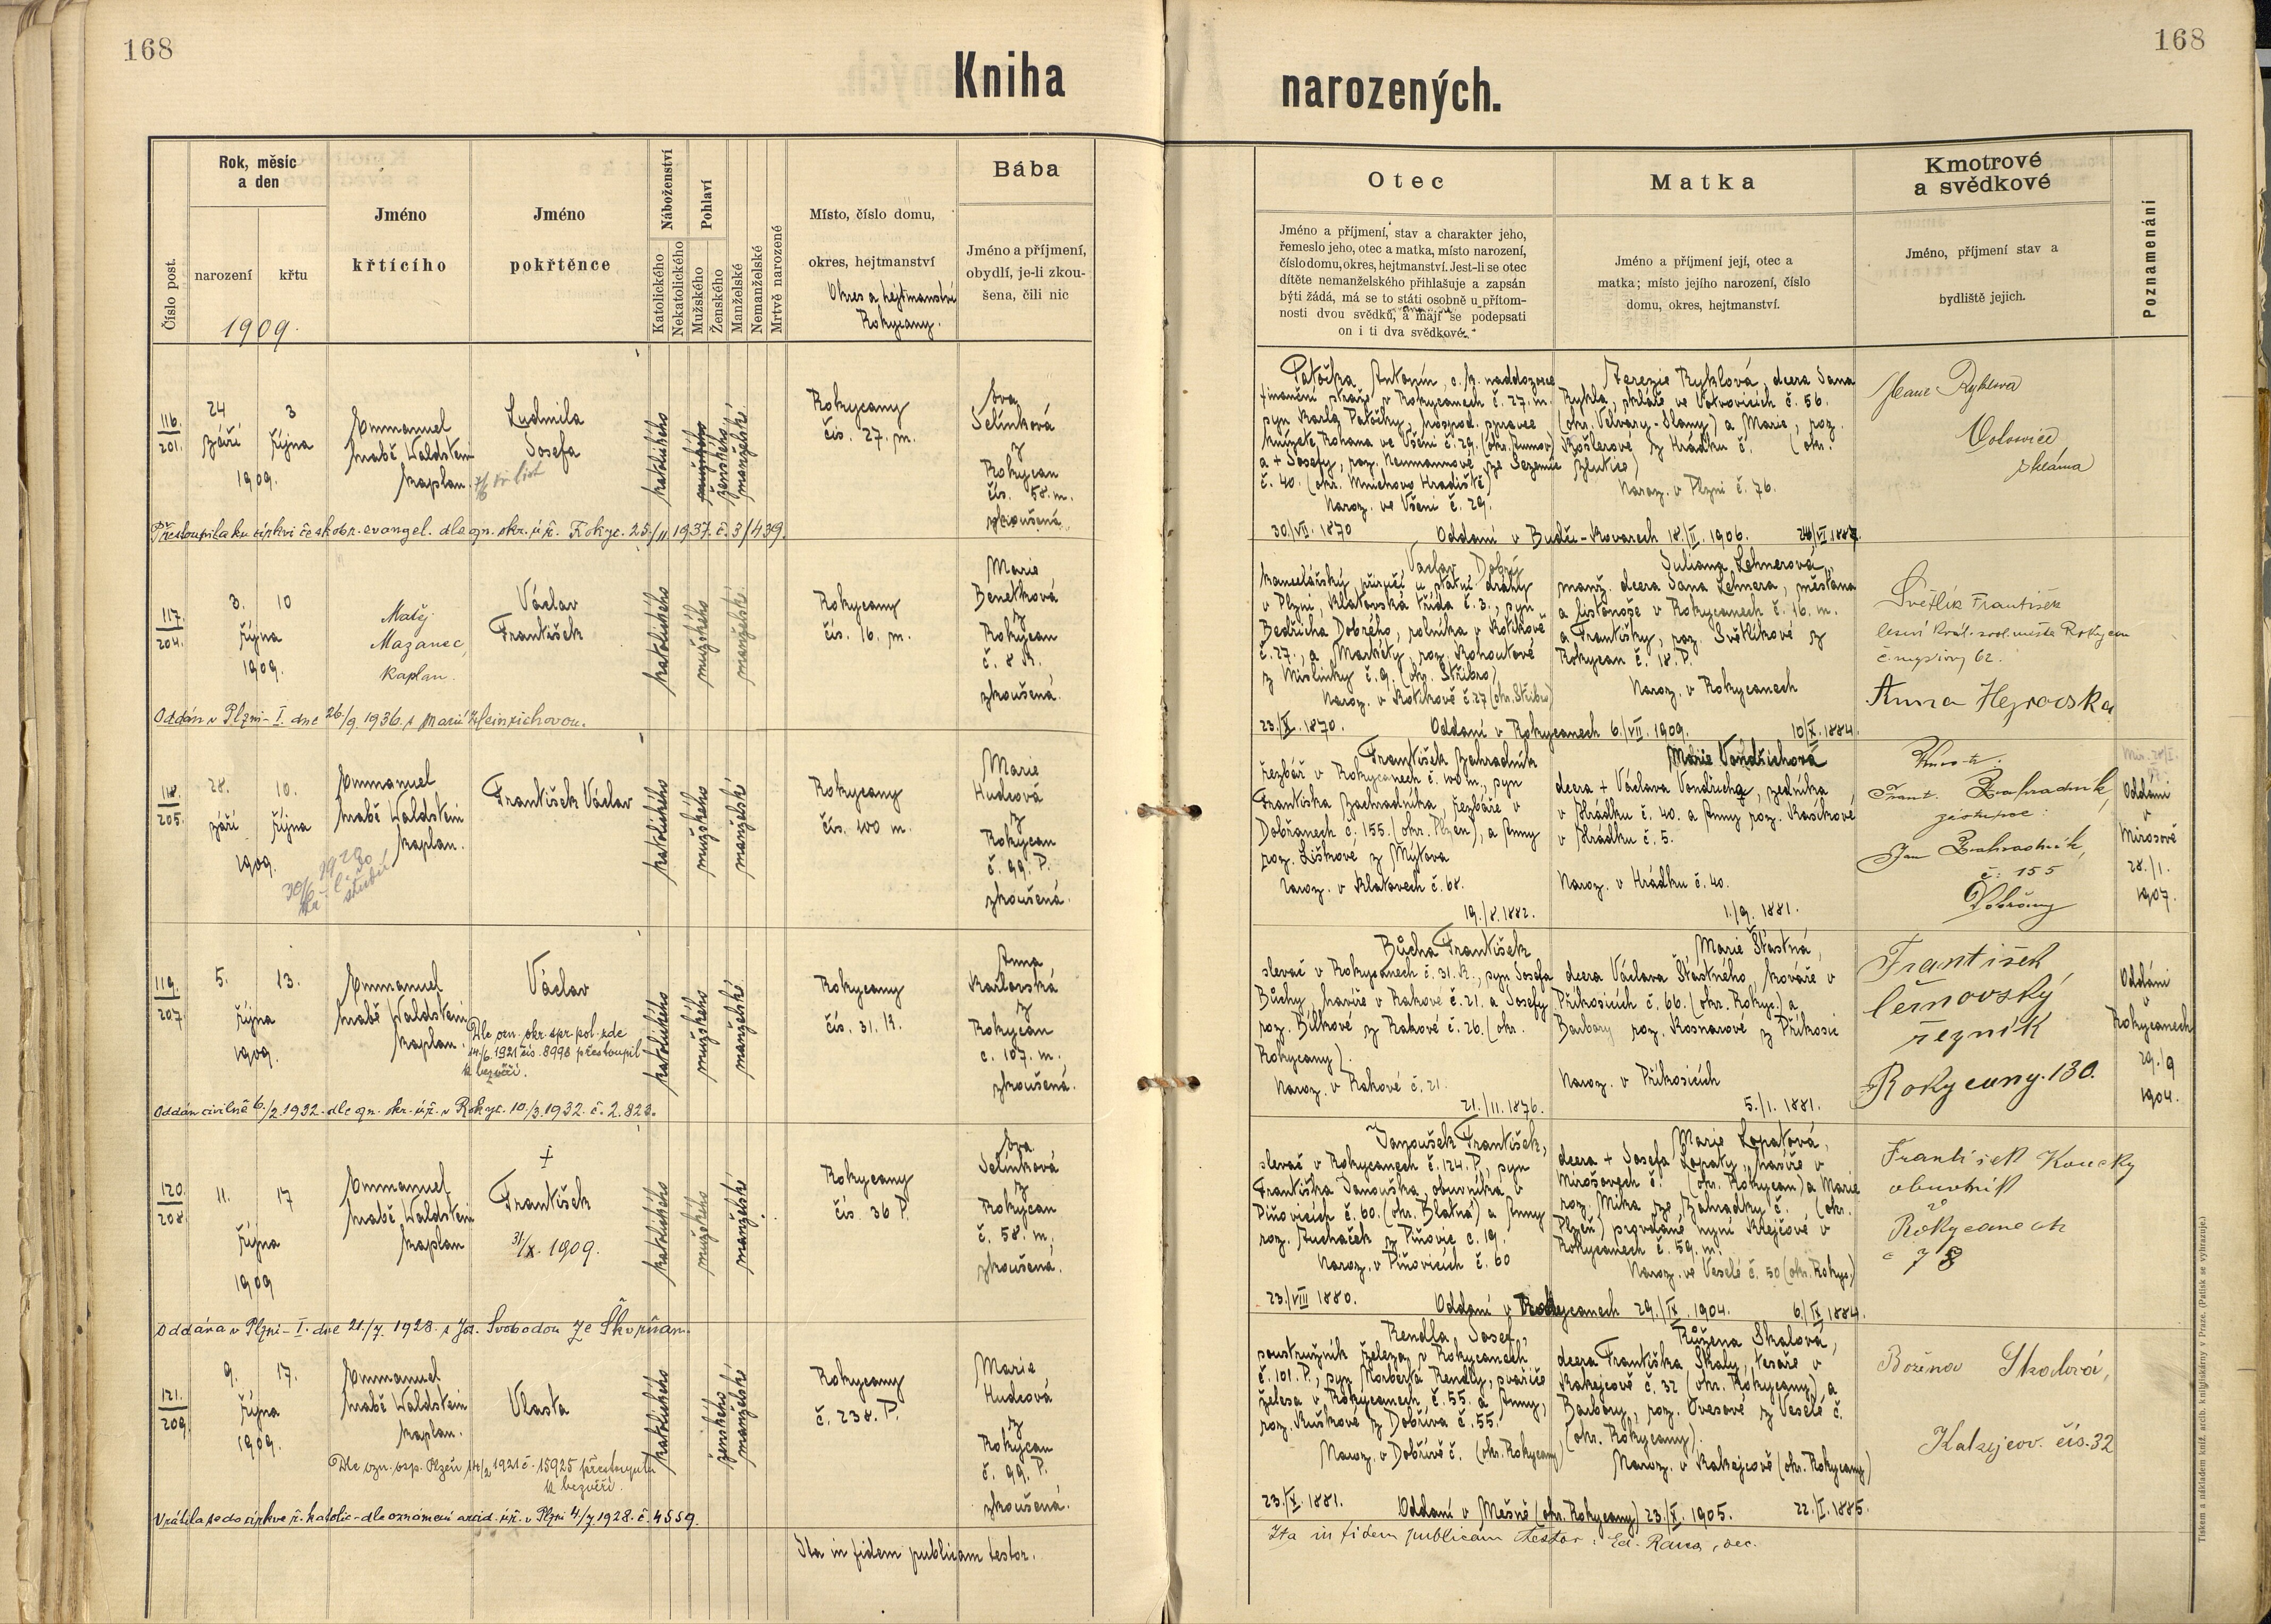 168
168
Kniha
narozených.
Číslo post.
Rok, měsíc
a den
narození
křtu
1909.
Jméno
křtícího
Jméno
pokřtěnce
Náboženství
Katolického
Nekatolického
Pohlaví
Mužského
Ženského
Manželské
Nemanželské
Mrtvě narozené
Místo, číslo domu,
okres, hejtmanství
Okres a hejtmanství
Rokycany.
Bába
Jméno a příjmení,
obydlí, je-li zkou-
šena, čili nic
Otec
Jméno a příjmení, stav a charakter jeho,
řemeslo jeho, otec a matka, místo narození,
číslo domu, okres, hejtmanství. Jest-li se otec
dítěte nemanželského přihlašuje a zapsán
býti žádá, má se to státi osobně u přítom-
nosti dvou svědků, a mají se podepsati
on i ti dva svědkové.
Matka
Jméno a příjmení její, otec a
matka; místo jejího narození, číslo
domu, okres, hejtmanství.
Kmotrové
a svědkové
Jméno, příjmení stav a
bydliště jejich.
Poznamenání
116.
201.
24
září
3
října
1909.
Emmanuel
hrabě Waldstein
kaplan.
Ludmila
Josefa
katolického
mužského
ženského
manželské
Rokycany
čís. 27. m.
Eva
Selínková
z
Rokycan
čís. 58. m.
zkoušená.
Patočka Antonín, c. k. naddozorce
finanční stráže v Rokycanech č. 27. m.
syn Karla Patočky, hospod. správce
knížete Rohana ve Všeni č. 29. (okr. Turnov)
a + Josefy, roz. Neumannové ze Sezemic
č. 40. (okr. Mnichovo Hradiště)
Naroz. ve Všeni č. 29.
30./VII. 1870
Terezie Ryklová, dcera Jana
Rykla, skláře ve Votvovicích č. 56.
(okr. Velvary-Slaný) a Marie, roz.
Košlerové z Hrádku č. (okr.
Žlutice)
Naroz. v Plzni č. 76.
Oddáni v Budči-Kovarech 18./II. 1906.
Přestoupila ku církvi českobr. evangel. dle ozn. okr. úř. Rokyc. 25./11. 1937. č. 3/439.
117.
204.
3.
října
10
1909.
Matěj
Mazanec,
kaplan.
Václav
František
katolického
mužského
manželské
Rokycany
čís. 16. m.
Marie
Benetková
z
Rokycan
č. 8 R.
zkoušená.
Václav Dobrý
kancelářský příručí u státní dráhy
v Plzni, Klatovská třída č. 3., syn
Bedřicha Dobrého, rolníka v Kotíkově
č. 27., a Markéty, roz. Kohoutové
z Mislinky č. 9. (okr. Stříbro)
Naroz. v Kotíkově č. 27 (okr. Stříbro)
23./X. 1870.
Juliana Lehnerová,
manž. dcera Jana Lehnera, měšťana
a listonoše v Rokycanech č. 16. m.
a Františky, roz. Světlíkové z
Rokycan č. 18. P.
Naroz. v Rokycanech
Oddáni v Rokycanech 6./VII. 1909.
10./X. 1884.
Světlík František
Anna Hejrovska
Oddán v Plzni-I. dne 26./9. 1936. s Marií Heinrichovou.
118.
205.
28.
září
10.
října
1909.
Emmanuel
hrabě Waldstein
kaplan.
František Václav
katolického
mužského
manželské
Rokycany
čís. 100 m.
Marie
Hudcová
z
Rokycan
č. 99. P.
zkoušená.
František Zahradník
řezbář v Rokycanech č. 100 m., syn
Františka Zachradníka, řezbáře v
Dobřanech č. 155. (okr. Plzeň), a Anny
roz. Liškové z Mýtova
Naroz. v Klatovech č. 68.
19./8. 1882.
Marie Vondřichová
dcera + Václava Vondřicha, zedníka
v Hrádku č. 40. a Anny roz. Kasíkové
v Hrádku č. 5.
Naroz. v Hrádku č. 40.
1./9. 1881.
Frant. Zahradník,
zástupce
Jan Zahradník,
č. 155
Dobřany
Oddáni
v
Mirošově
28./1.
1907.
119.
207
5.
října
13.
1909.
Emmanuel
hrabě Waldstein
kaplan.
Václav
Dle ozn. okr. spr. pol. zde
14./6. 1921 čís. 8998 přestoupil
k bezvěří.
katolického
mužského
manželské
Rokycany
čís. 31. R.
Anna
Karlovská
z
Rokycan
č. 107. m.
zkoušená.
Bůcha František
slevač v Rokycanech č. 31. R., syn Josefa
Bůchy, havíře v Rakové č. 21. a Josefy
roz. Bílkové z Rakové č. 26. (okr.
Rokycany).
Naroz. v Rakové č. 21.
21./11. 1876.
Marie Šťastná,
dcera Václava Šťastného, kováře v
Příkosicích č. 66. (okr. Rokyc.) a
Barbory roz. Kosnarové z Příkosic
Naroz. v Příkosicích
5./1. 1881.
František
Černovský
řezník
Rokycany. 130.
Oddáni
v
Rokycanech
29./9
1904.
Oddán civilně 6./2. 1932. dle ozn. okr. úř. v Rokyc. 10./3. 1932. č. 2.823.
120.
208.
11.
října
17
1909
Emmanuel
hrabě Waldstein
kaplan
+
František
31/X. 1909.
katolického
mužského
manželské
Rokycany
čís. 36 P.
Eva
Selínková
z
Rokycan
č. 58. m.
zkoušená.
Janoušek František,
slevač v Rokycanech č. 124. P., syn
Františka Janouška, obuvníka v
Piňovicích č. 60. (okr. Blatná) a Anny
roz. Tuchaček z Piňovic č. 19.
Naroz. v Piňovicích č. 60
23./VIII 1880.
Marie Lopatová,
dcera + Josefa Lopaty, havíře v
Mirošovech č. (okr. Rokycan) a Marie
roz. Mika ze Zahrádky č. (okr.
Plzeň) provdané nyní Krejčové v
Rokycanech č. 59. m.
Naroz. ve Veselé č. 50 (okr. Rokyc.)
Oddáni v Rokycanech 29./IX. 1904.
6./IX 1884.
František Koucky
obuvník
v
Rokycanech
č 78
Oddána v Plzni-I. dne 21./7. 1928. s Jos. Svobodou ze Škvrňan.
121.
209.
9.
října
17.
1909.
Emmanuel
hrabě Waldstein
kaplan.
Vlasta
katolického
ženského
manželské
Rokycany
č. 238. P.
Marie
Hudcová
z
Rokycan
č. 99. P.
zkoušená.
Rendla Josef,
soustružník železa v Rokycanech
č. 101. P., syn Norberta Rendly, svářeče
železa v Rokycanech, č. 55. a Anny,
roz. Kuškové z Dobříva č. 55.
Naroz. v Dobřívě č. (okr. Rokycany)
23./X. 1881.
Růžena Skalová,
dcera Františka Skaly, tesaře v
Kakejcově č. 32 (okr. Rokycany) a
Barbory, roz. Ovesové z Veselé č.
(okr. Rokycany).
Naroz. v Kakejcově (okr. Rokycany)
Oddáni v Mešně (okr. Rokycany) 23./X. 1905.
22./I. 1885.
Božena Skalová,
Kakejcov. čís. 32
Dle ozn. osp. Plzeň 14/2 1921 č. 15925 přestoupila
k bezvěří.
Vrátila se do církve ř. katolic. dle oznámení arcid. úř. v Plzni 4/7. 1928. č. 4559.
Ita in fidem publicam testor.
Ita in fidem publicam testor:
Tiskem a nákladem kníž. arcib. knihtiskárny v Praze. (Patisk se vyhrazuje.)